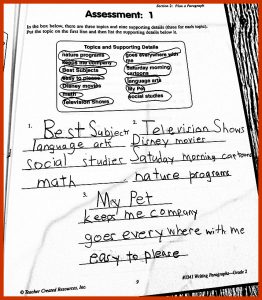 Section 2: Plan a Paragraph
Assessment: 1
In the box below, there are three topics and nine supporting details (three for each topic).
Put the topic on the first line and then list the supporting details below it.
Topics and Supporting Details
nature programs
goes everywhere with me
keeps me company
Saturday morning cartoons
Best Subjects
easy to please
language arts
Disney movies
My Pet
math
social studies
Television Shows
1. Best Subject
language arts
social studies
math
2. Television Shows
Disney movies
Satuday morning cartoons
nature programs
3. My Pet
keeps me company
goes every where with me
easy to please
© Teacher Created Resources, Inc.
9
#3341 Writing Paragraphs—Grade 2